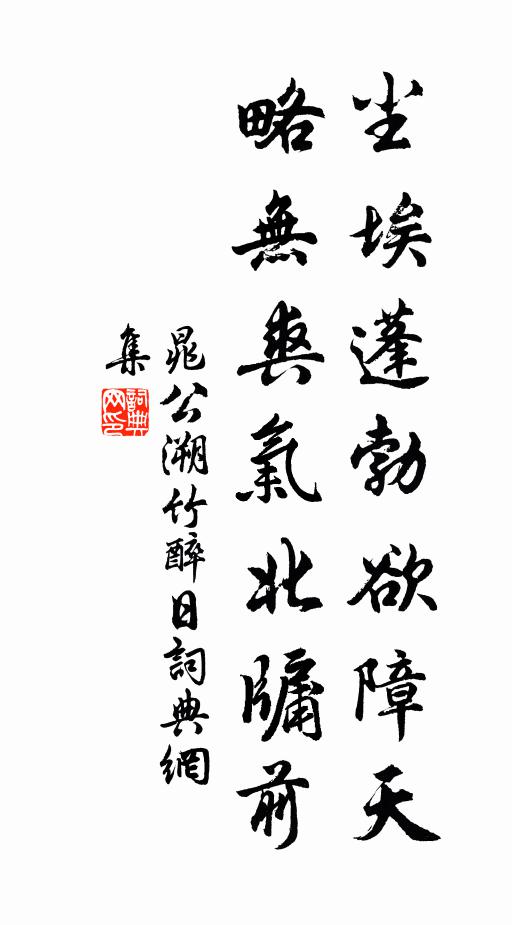 尘埃蓬勃欲障天
略無爽氣北牖前
晁公溯竹醉日詞典網
集
詞典
网印